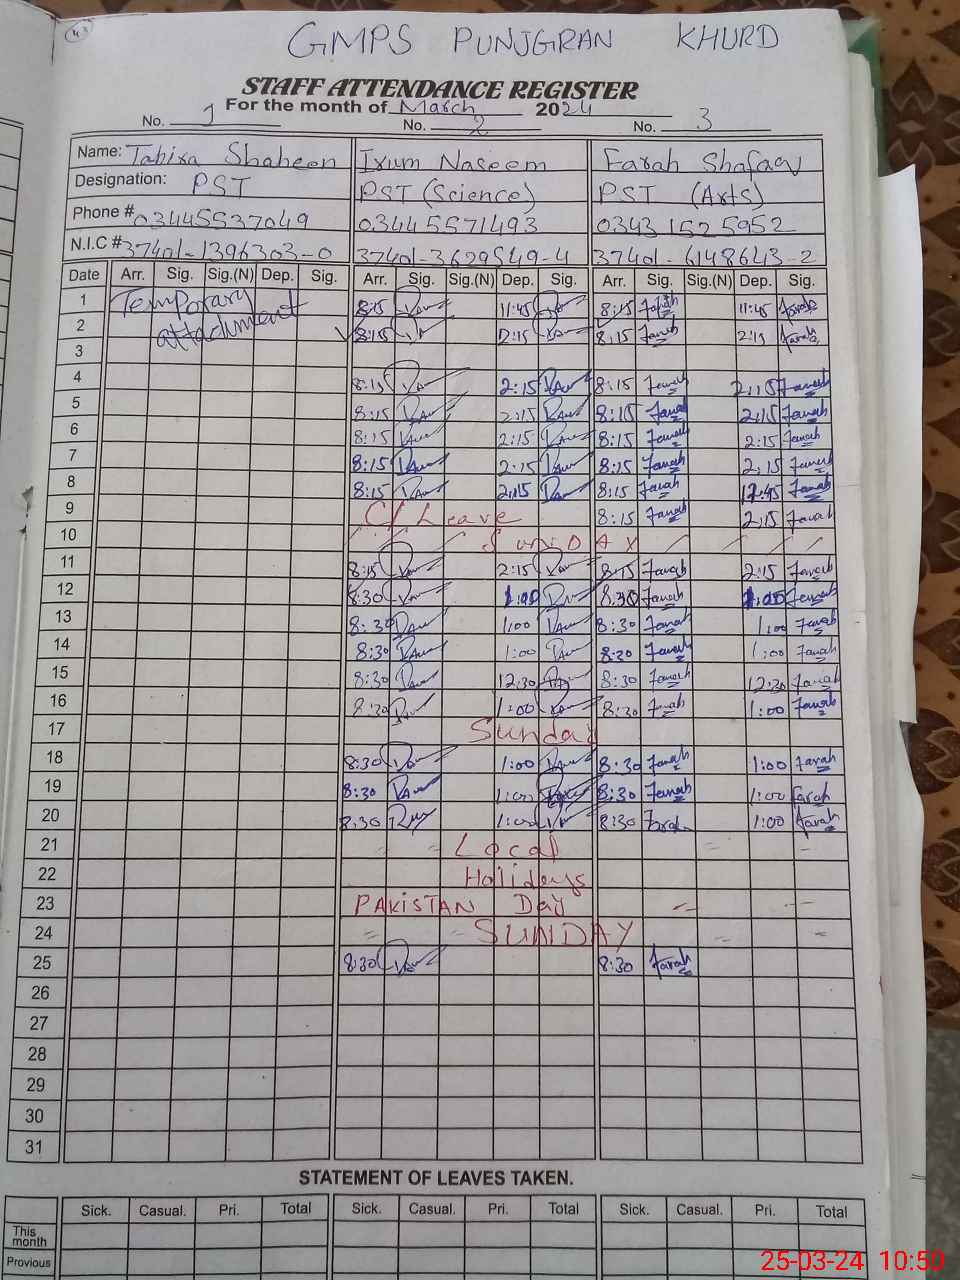 GMPS PUNJGRAN KHURD
STAFF ATTENDANCE REGISTER
For the month of March 2024
No. 1 No. 2 No. 3
Name: Tahira Shaheen Irum Naseem Farah Shafaq
Designation: PST PST (Science) PST (Arts)
Phone # 03445537049 03445571493 0343 1525952
N.I.C # 37401-1396303-0 37401-3629549-4 37401-6148643-2
Date Arr. Sig. Sig.(N) Dep. Sig. Arr. Sig. Sig.(N) Dep. Sig. Arr. Sig. Sig.(N) Dep. Sig.
1 Temporary 8:15 11:45 8:15 Farah 11:45 Farah
2 attachment 8:15 2:15 8:15 Farah 2:15 Farah
3
4 8:15 2:15 8:15 Farah 2:15 Farah
5 8:15 2:15 8:15 Farah 2:15 Farah
6 8:15 2:15 8:15 Farah 2:15 Farah
7 8:15 2:15 8:15 Farah 2:15 Farah
8 8:15 2:15 8:15 Farah 12:45 Farah
9 C/Leave 8:15 Farah 2:15 Farah
10 SunDAY
11 8:15 2:15 8:15 Farah 2:15 Farah
12 8:30 1:00 8:30 Farah 1:00 Farah
13 8:30 1:00 8:30 Farah 1:00 Farah
14 8:30 1:00 8:30 Farah 1:00 Farah
15 8:30 12:30 8:30 Farah 12:30 Farah
16 8:30 1:00 8:30 Farah 1:00 Farah
17 Sunday
18 8:30 1:00 8:30 Farah 1:00 Farah
19 8:30 1:00 8:30 Farah 1:00 Farah
20 8:30 1:00 8:30 Farah 1:00 Farah
21 Local
22 Holidays
23 PAKISTAN Day
24 SUNDAY
25 8:30 8:30 Farah
26
27
28
29
30
31
STATEMENT OF LEAVES TAKEN.
Sick. Casual. Pri. Total Sick. Casual. Pri. Total Sick. Casual. Pri. Total
This month
Previous
25-03-24 10:50